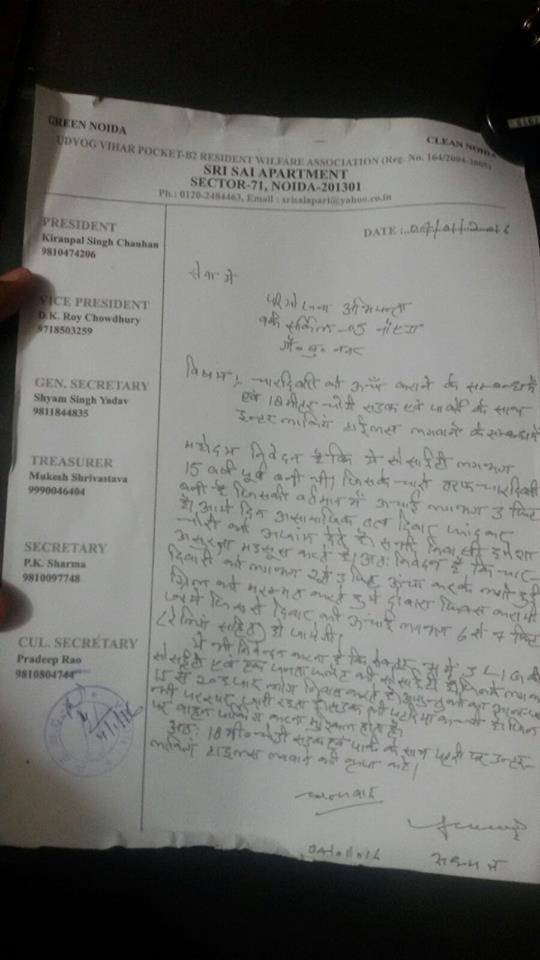 GREEN NOIDA
CLEAN NOIDA
UDYOG VIHAR POCKET-B2 RESIDENT WILFARE ASSOCIATION (Reg. No. 164/2004-2005)
SRI SAI APARTMENT
SECTOR-71, NOIDA-201301
Ph.: 0120-2484463, Email : srisaiapart@yahoo.co.in
DATE :
PRESIDENT
Kiranpal Singh Chauhan
9810474206
VICE PRESIDENT
D.K. Roy Chowdhury
9718503259
GEN. SECRETARY
Shyam Singh Yadav
9811844835
TREASURER
Mukesh Shrivastava
9990046404
SECRETARY
P.K. Sharma
9810097748
CUL. SECRETARY
Pradeep Rao
9810804744
सेवा मे
परियोजना अभियन्ता
वर्क सर्किल-05 नोएडा
गौ० बु० नगर
विषय:- चारदिवारी को ऊचाँ कराने के सम्बन्ध मे
एवं 18 मीटर चोडी सडक एवं पार्को के साथ
इन्टर लाकिंग टाईलस लगवाने के सम्बन्ध मे
महोदय निवेदन है कि ये सोसाईटी लगभग
15 वर्ष पूर्व बनी थी। जिसके चारो तरफ चारदिवारी
बनी है जिसकी वर्तमान में ऊचाई लगभग 3 फिट
है। आये दिन असामाजिक तत्व दिवार फांदकर
चोरी को अंजाम देते है। सभी निवासी हमेशा
असुरक्षा महसूस करते है। अतः निवेदन है कि चार-
दिवारी को लगभग 2 से 3 फिट ऊचा करके लगी हुयी
ग्रिल को मरम्मत करते हुये दुबारा फिक्स कराया
जाये जिससे दिवार की ऊचाई लगभग 6 से 7 फिट
(रेलिंग सहित) हो जायेगी।
ये भी निवेदन करना है कि सेक्टर 71 में 3 L.I.G की
सोसाईटी एवं एक जनता फ्लैट की सोसाईटी है जिनमे लगभग
15 से 20 हजार लोग निवास करते है।
पर वाहन पार्किंग करना मुश्किल होता है।
अतः 18 मी० चोडी सडक एवं पार्क के साथ पटरी पर इन्टर-
लाकिंग टाइलस लगवाने की कृपा करे।
धन्यवाद